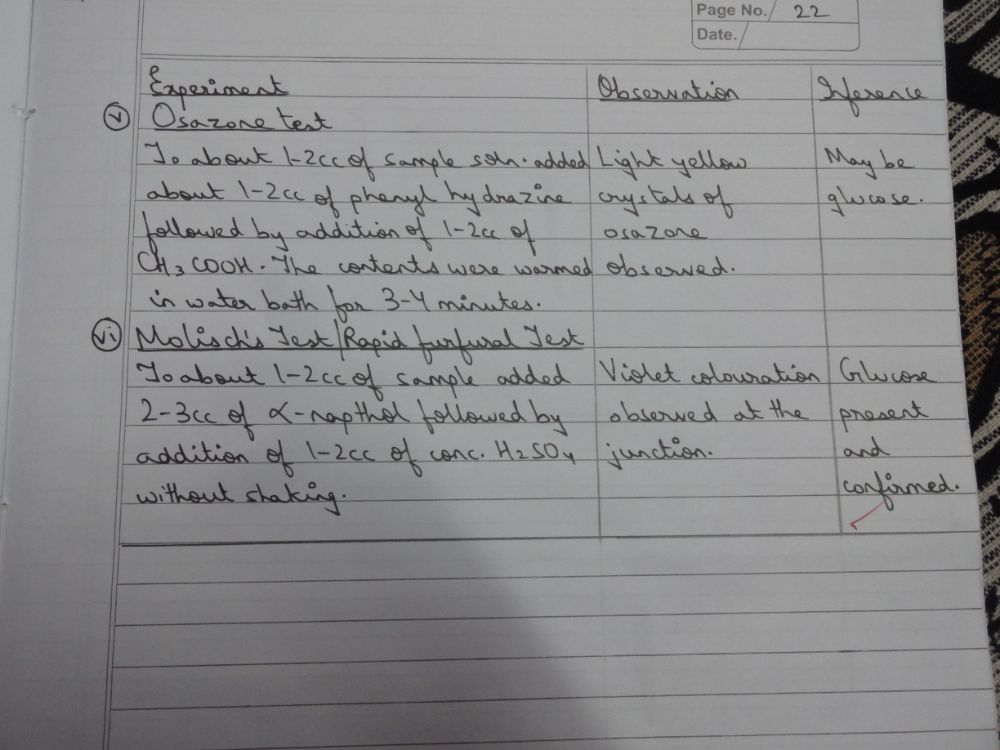 Page No. 22
Date.
Experiment Observation Inference
(v) Osazone test
To about 1-2cc of sample soln. added Light yellow May be
about 1-2cc of phenyl hydrazine crystals of glucose.
followed by addition of 1-2cc of osazone
CH3COOH. The contents were warmed observed.
in water bath for 3-4 minutes.
(vi) Molisch's Test/Rapid furfural Test
To about 1-2cc of sample added Violet colouration Glucose
2-3cc of α-napthol followed by observed at the present
addition of 1-2cc of conc. H2SO4 junction. and
without shaking. confirmed.